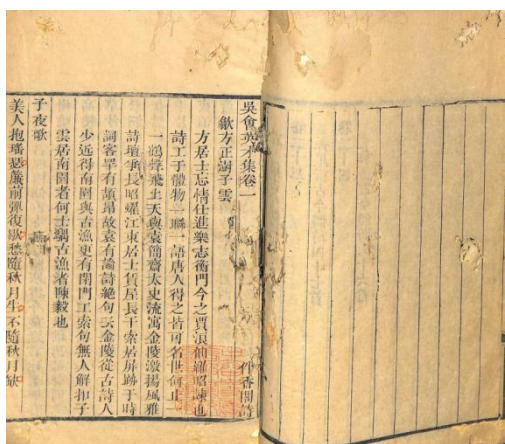 吳會英才集卷一
伴香閣詩
歙方正澍子雲
方居士忘情仕進樂志衡門今之賈浪仙羅昭諫也
詩工于體物一聯一語唐人得之皆可名世何止
一鶴聲飛上天與袁簡齋太史流寓金陵激揚風雅
詩壇爭長昭燿江東居士賃屋長干索居屏跡于時
詞客罕有頡頏故袁有論詩絕句云金陵從古詩人
少近得南園與古漁更有閉門工索句無人解扣子
雲居南園者何士顒古漁者陳毅也
子夜歌
美人抱瑤瑟簾前彈復歇愁隨秋月生不隨秋月缺